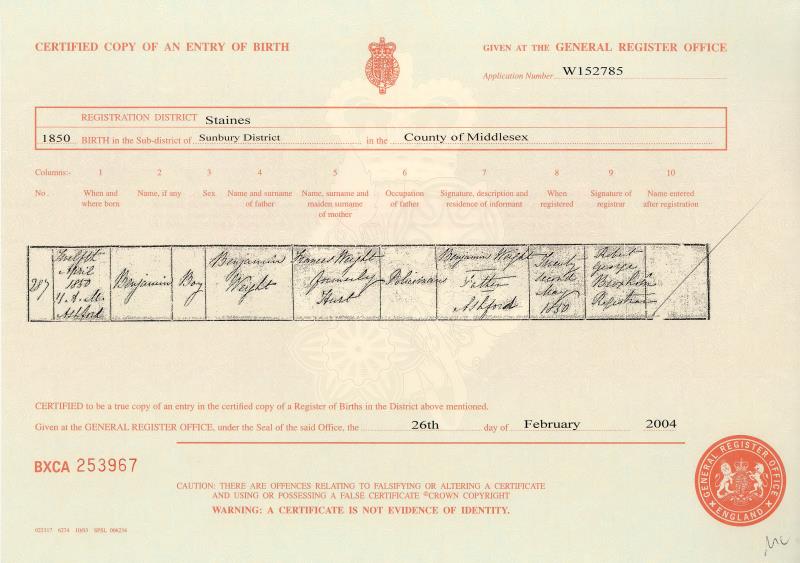 CERTIFIED COPY OF AN ENTRY OF BIRTH
GIVEN AT THE GENERAL REGISTER OFFICE
Application Number W152785
REGISTRATION DISTRICT Staines
1850 BIRTH in the Sub-district of Sunbury District in the County of Middlesex
Columns:- 1 2 3 4 5 6 7 8 9 10
No. When and where born Name, if any Sex Name and surname of father Name, surname and maiden surname of mother Occupation of father Signature, description and residence of informant When registered Signature of registrar Name entered after registration
287
Twelfth
April
1850
A.M.
Ashford
Benjamin
Boy
Benjamin
Weight
Frances Weight
formerly
Hurst
Policeman
Benjamin Weight
Father
Ashford
Twenty
second
May
1850
Robert
George
Registrar
CERTIFIED to be a true copy of an entry in the certified copy of a Register of Births in the District above mentioned.
Given at the GENERAL REGISTER OFFICE, under the Seal of the said Office, the 26th day of February 2004
BXCA 253967
CAUTION: THERE ARE OFFENCES RELATING TO FALSIFYING OR ALTERING A CERTIFICATE
AND USING OR POSSESSING A FALSE CERTIFICATE ©CROWN COPYRIGHT
WARNING: A CERTIFICATE IS NOT EVIDENCE OF IDENTITY.
GENERAL REGISTER OFFICE
ENGLAND